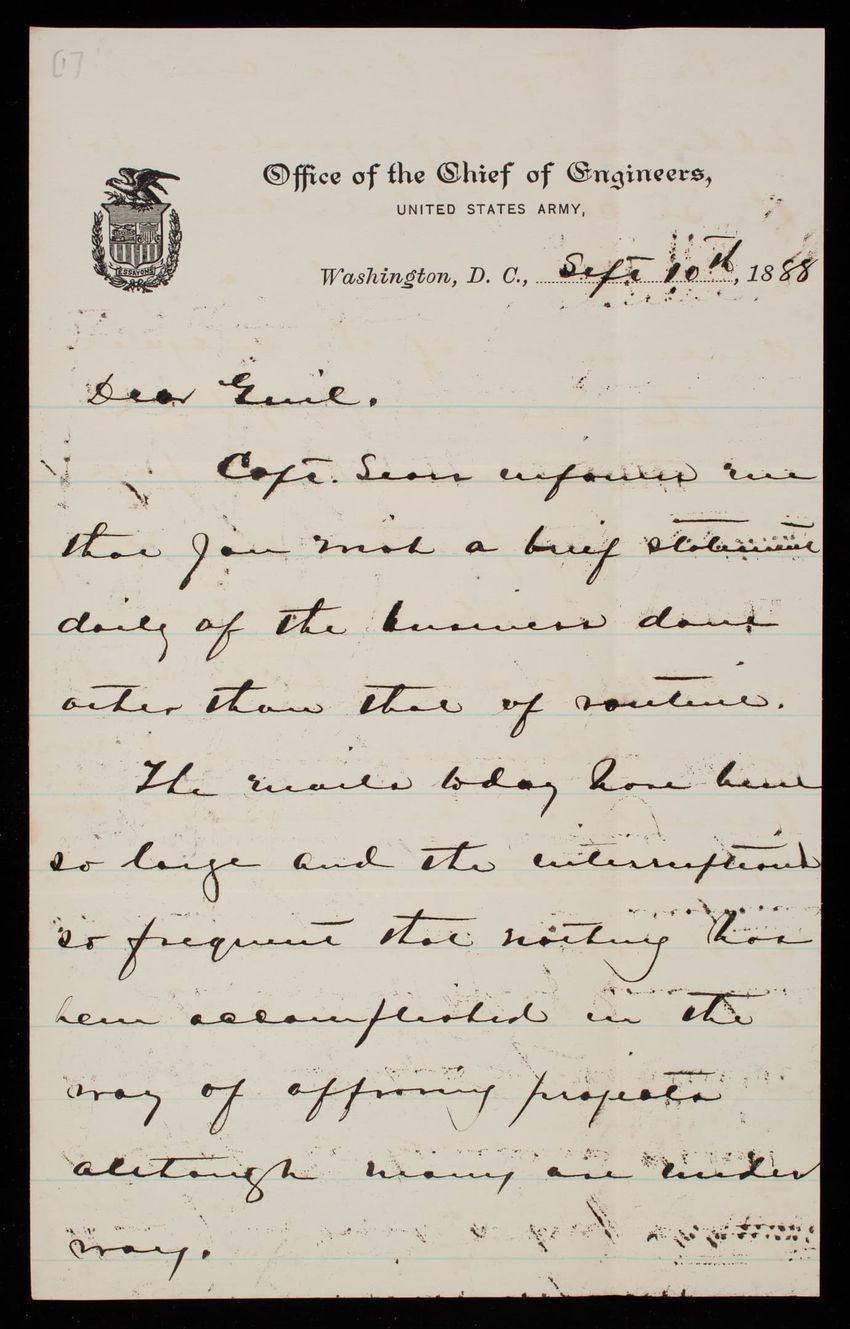 [1]
Office of the Chief of Engineers,
UNITED STATES ARMY,
ESSAYONS
Washington, D. C., Sept 10th, 1888
Dear Genl.
Capt. Sears informs me
that you wish a brief statement
daily of the business done
other than that of routine.
The mails today have been
so large and the interruptions
so frequent that nothing has
been accomplished in the
way of approving projects
although many are under
way.